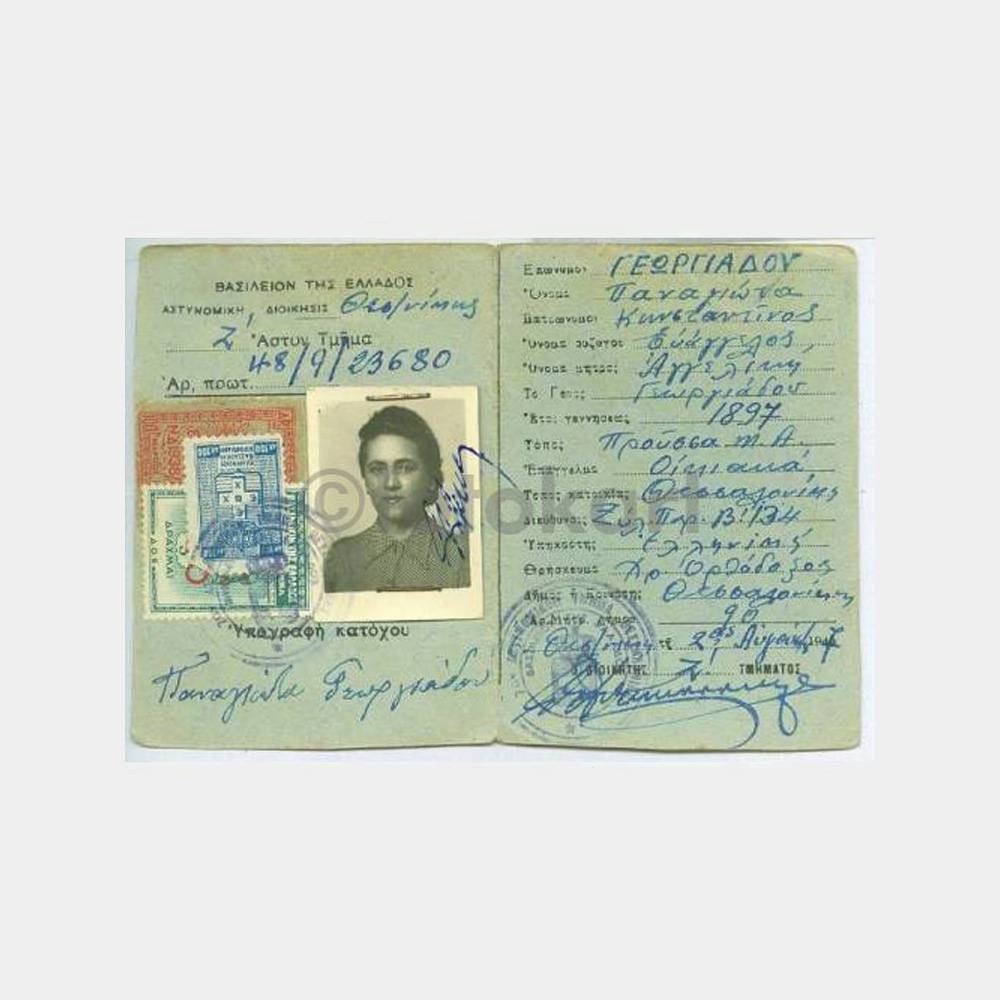 ΒΑΣΙΛΕΙΟΝ ΤΗΣ ΕΛΛΑΔΟΣ
ΑΣΤΥΝΟΜΙΚΗ ΔΙΟΙΚΗΣΙΣ Θεσ/νίκης
Ζ' Ἀστυν Τμῆμα
Ἀρ. πρωτ. 48/9/23680
ΔΡΑΧΜΑΙ
Ὑπογραφή κατόχου
Παναγιώτα Γεωργιάδου
Ἐπώνυμον ΓΕΩΡΓΙΑΔΟΥ
Ὄνομα Παναγιώτα
Πατρώνυμον Κωνσταντῖνος
Ὄνομα συζύγου Εὐάγγελος
Ὄνομα μητρός Ἀγγελική
Τὸ Γένος Γεωργιάδου
Ἔτος γεννήσεως 1897
Τόπος Προῦσσα Μ.Α.
Ἐπάγγελμα Οἰκιακά
Τόπος κατοικίας Θεσσαλονίκη
Διεύθυνσις 134
Ὑπηκοότης Ἑλληνικής
Θρήσκευμα Χρ. Ὀρθόδοξος
Δῆμος ἢ Θεσσαλονίκης
90
Θεσ/νίκη τῇ 2 Αὐγούστου 194
Ὁ ΔΙΟΙΚΗΤΗΣ Ζ. ΤΜΗΜΑΤΟΣ